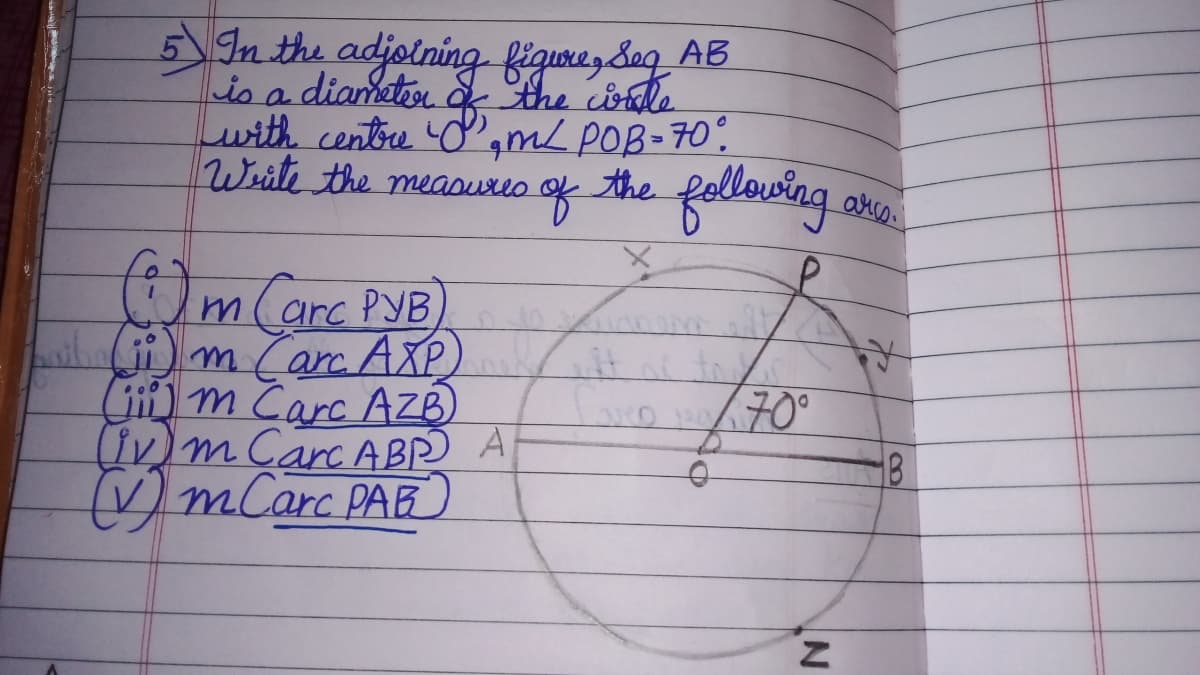 5) In the adjoining figure, Seg AB
is a diameter of the circle
with centre 'O', m∠ POB = 70°.
Write the measures of the following arcs.
(i) m (arc PYB)
(ii) m (arc AXP)
(iii) m (arc AZB)
(iv) m (arc ABP)
(v) m (arc PAB)
X
P
Y
70°
A
O
B
Z